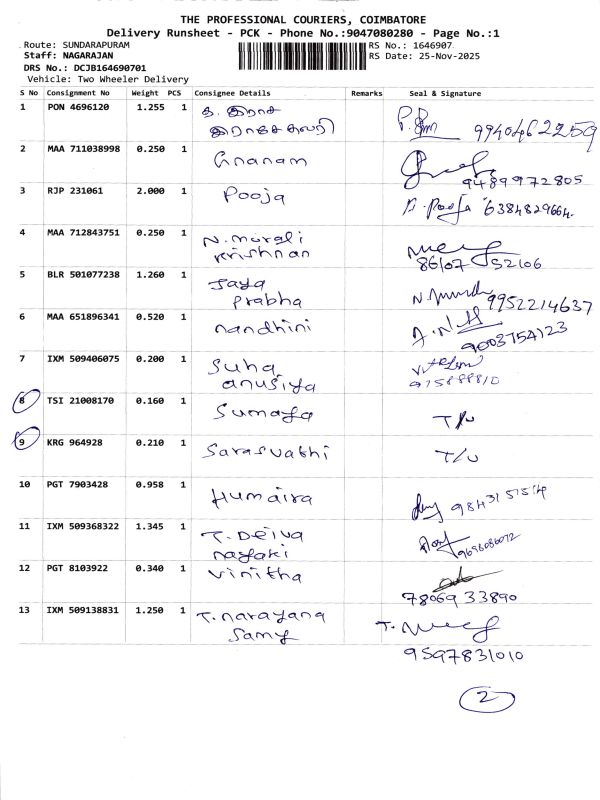 THE PROFESSIONAL COURIERS, COIMBATORE
Delivery Runsheet - PCK - Phone No.:9047080280 - Page No.:1
Route: SUNDARAPURAM RS No.: 1646907
Staff: NAGARAJAN RS Date: 25-Nov-2025
DRS No.: DCJB164690701
Vehicle: Two Wheeler Delivery
S No Consignment No Weight PCS Consignee Details Remarks Seal & Signature
1 PON 4696120 1.255 1 த. இராச 9940462259
2 MAA 711038998 0.250 1 Gnanam 9489972805
3 RJP 231061 2.000 1 Pooja P. Pooja 6384829664
4 MAA 712843751 0.250 1 N. murali
krishnan 86107 52106
5 BLR 501077238 1.260 1 Jaya
prabha 9952214637
6 MAA 651896341 0.520 1 nandhini 9003754123
7 IXM 509406075 0.200 1 Suha
anusiya
8 TSI 21008170 0.160 1 Sumaya T/U
9 KRG 964928 0.210 1 Sarasvathi T/U
10 PGT 7903428 0.958 1 Humaira
11 IXM 509368322 1.345 1 T. Deiva
nayaki
12 PGT 8103922 0.340 1 Vinitha 78069 33890
13 IXM 509138831 1.250 1 T. narayana
Samy 9597831010
2